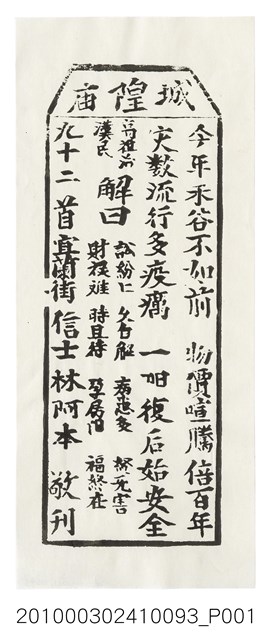 城隍庙
今年禾谷不如前　物價喧騰倍百年
灾数流行多疫癘　一陽復后始安全
高祖治漢民　解曰　訟紛仁　久自解　病患多　終无害
財祿難　時且待　孕居
福終在
九十二首　宜蘭街　信士　林阿本　敬刊
201000302410093_P001